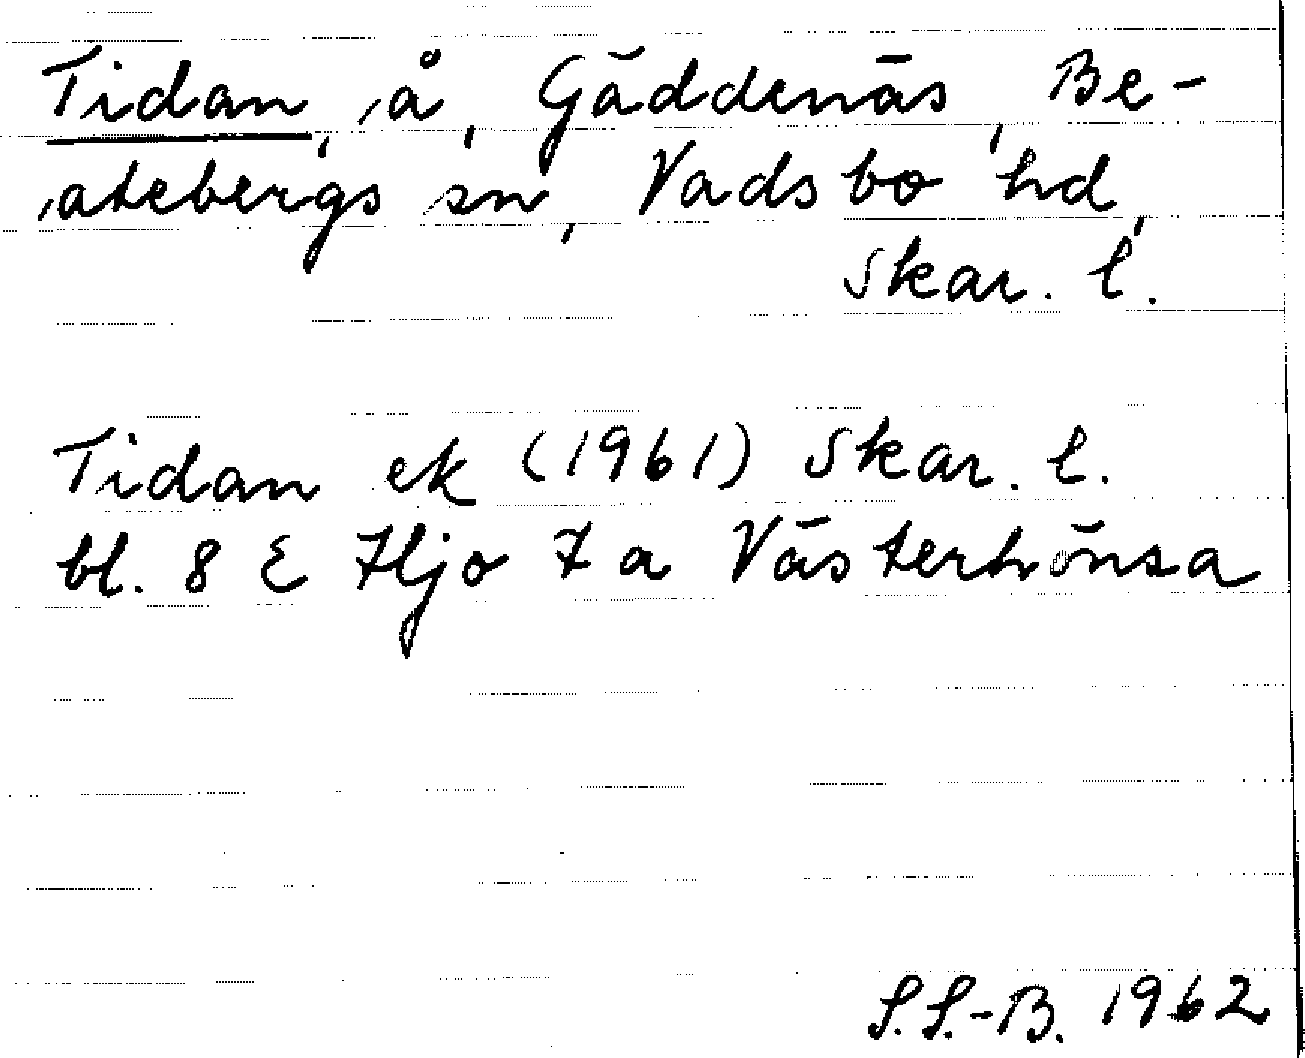 Tidan, å, Gäddenäs, Be-
atebergs sn, Vadsbo hd,
Skar. l.
Tidan ek (1961) Skar. l.
bl. 8 E Hjo 7 a Västerhönsa
S.S.-B. 1962